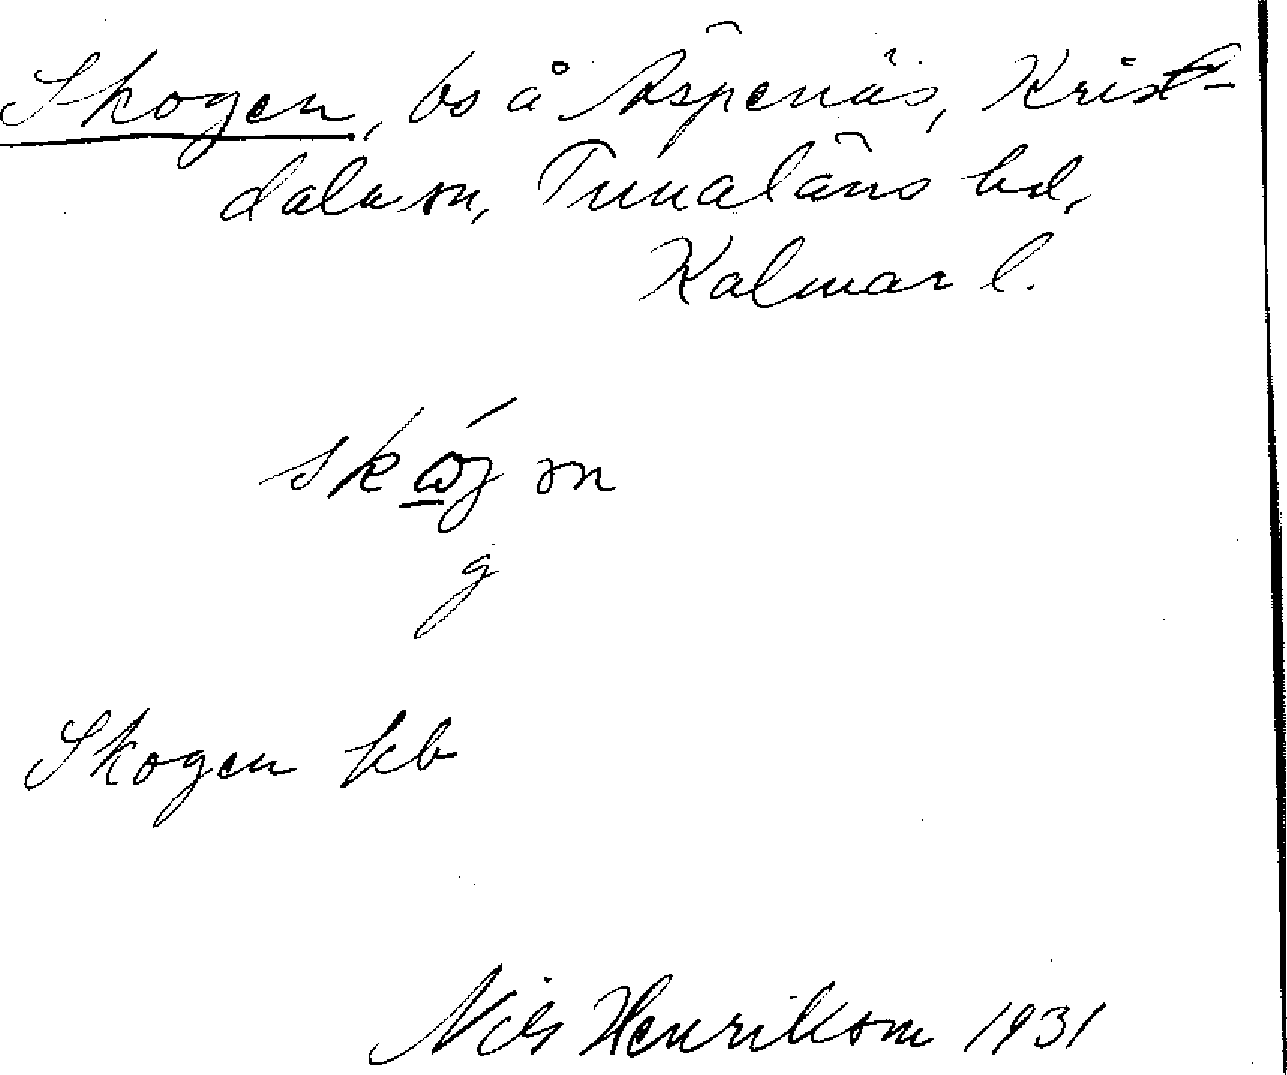 Skogen, bs å Äspenäs, Krist-
dala sn, Tunaläns hd,
Kalmar l.
skógən
g
Skogen kb
Nils Henrikson 1931